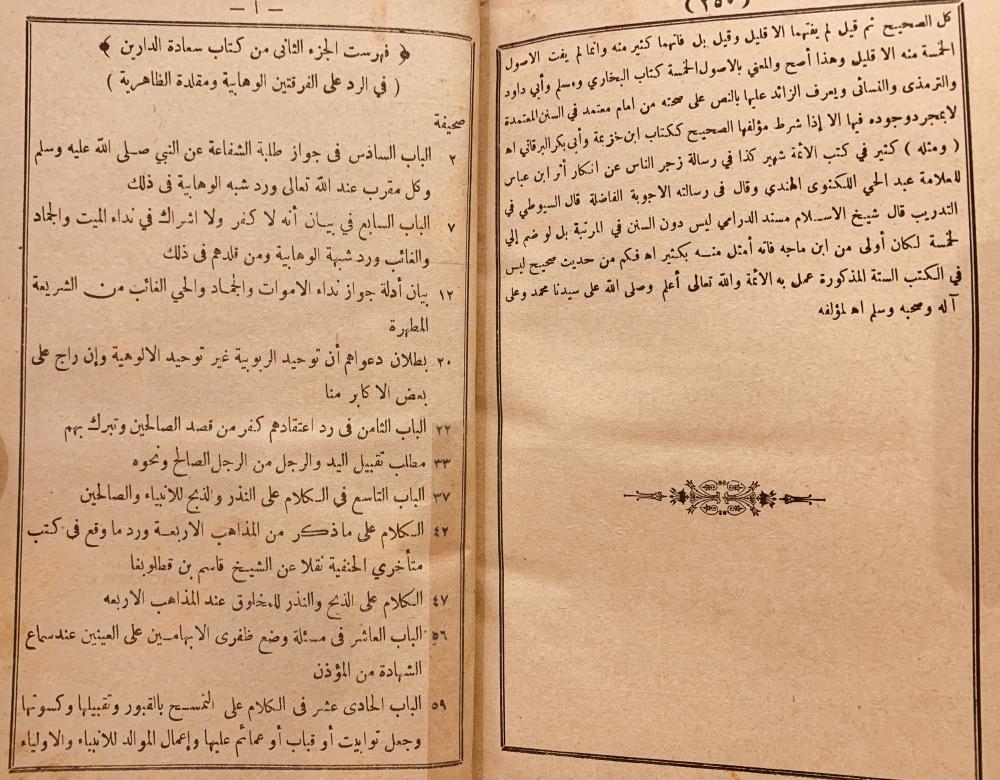 (٢٥٠)
كل الصحيح ثم قيل لم يفتهما الا قليل وقيل بل فاتهما كثير منه وانما لم يفت الاصول
الخمسة منه الا قليل وهذا أصح والمعني بالاصول الخمسة كتاب البخاري ومسلم وأبي داود
والترمذى والنسائى ويعرف الزائد عليها بالنص على صحته من امام معتمد في السنن المعتمدة
لا بمجرد وجوده فيها الا إذا شرط مؤلفها الصحيح ككتاب ابن خزيمة وأبى بكر البرقاني اه
( ومثله ) كثير في كتب الائمة شهير كذا في رسالة زجر الناس عن انكار أثر ابن عباس
للعلامة عبد الحي اللكنوى الهندي وقال فى رسالته الاجوبة الفاضلة قال السيوطي في
التدريب قال شيخ الاسلام مسند الدرامي ليس دون السنن في المرتبة بل لو ضم إلي
لخمسة لكان أولى من ابن ماجه فانه أمثل منه بكثير اه فكم من حديث صحيح ليس
في الكتب الستة المذكورة عمل به الأئمة والله تعالى أعلم وصلى الله على سيدنا محمد وعلى
آله وصحبه وسلم اه لمؤلفه
— ١ —
﴿ فهرست الجزء الثانى من كتاب سعادة الدارين ﴾
( في الرد على الفرقتين الوهابية ومقلدة الظاهرية )
صحيفة
٢ الباب السادس فى جواز طلبة الشفاعة عن النبي صلى الله عليه وسلم
وكل مقرب عند الله تعالى ورد شبه الوهابية فى ذلك
٧ الباب السابع في بيان أنه لا كفر ولا اشراك في نداء الميت والجماد
والغائب ورد شبهة الوهابية ومن قلدهم فى ذلك
١٢ بيان أدلة جواز نداء الاموات والجماد والحي الغائب من الشريعة
المطهرة
٢٠ بطلان دعواهم أن توحيد الربوبية غير توحيد الالوهية وإن راج على
بعض الاكابر منا
٢٢ الباب الثامن فى رد اعتقادهم كفر من قصد الصالحين وتبرك بهم
٣٣ مطلب تقبيل اليد والرجل من الرجل الصالح ونحوه
٣٧ الباب التاسع فى الكلام على النذر والذبح للانبياء والصالحين
٤٢ الكلام على ما ذكر من المذاهب الاربعة ورد ما وقع فى كتب
متأخري الحنفية نقلا عن الشيخ قاسم بن قطلوبغا
٤٧ الكلام على الذبح والنذر للمخلوق عند المذاهب الاربعه
٥٦ الباب العاشر فى مسئلة وضع ظفرى الابهامين على العينين عند سماع
الشهادة من المؤذن
٥٩ الباب الحادى عشر فى الكلام على التمسح بالقبور وتقبيلها وكسوتها
وجعل توابيت أو قباب أو عمائم عليها وإعمال الموالد للانبياء والاولياء